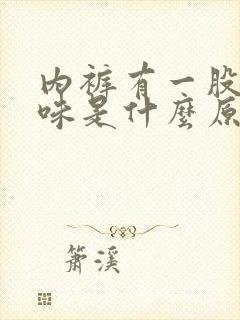 内裤有一股
味是什麼原
箫溪